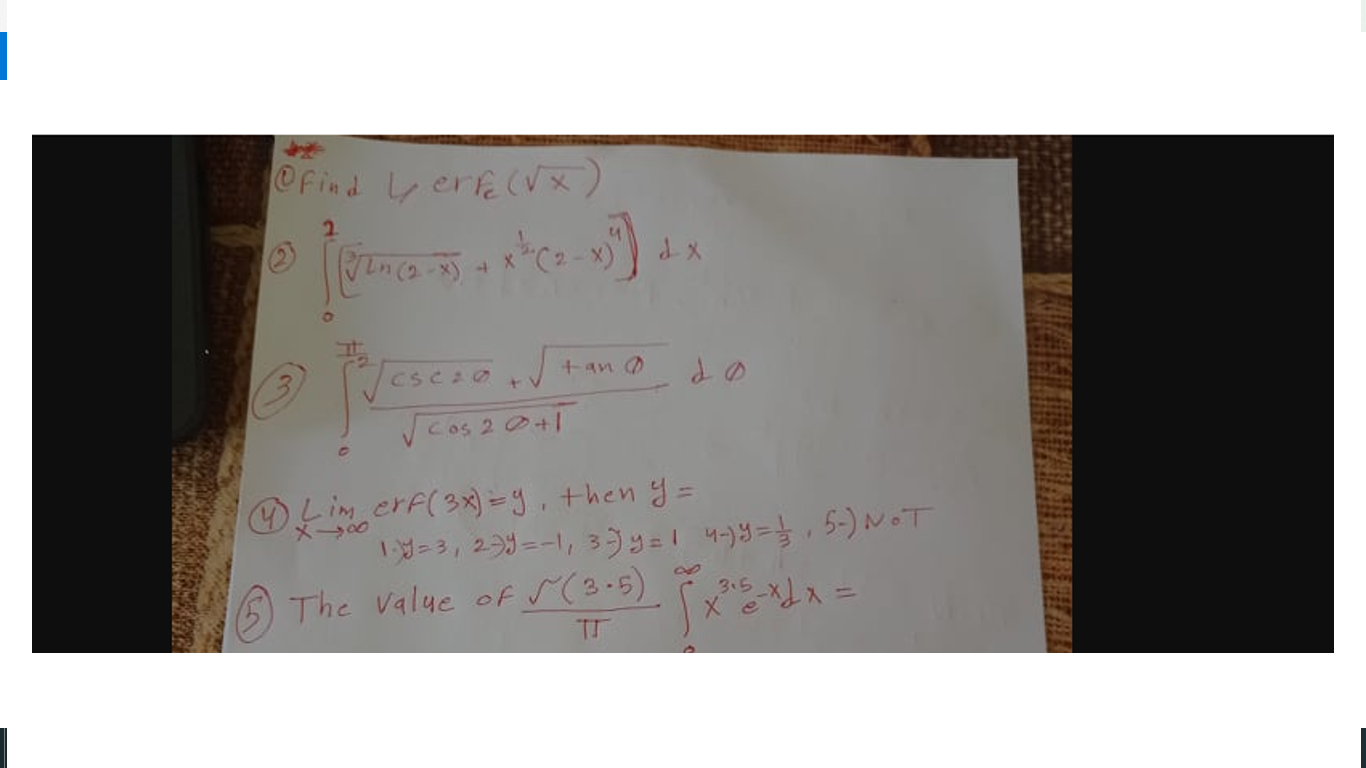 ① Find L, erfc(√x)
② ∫₀² [∛Ln(2-x) + x^½ (2-x)^4] dx
③ ∫₀^(π/2) (√csc 2∅ + √tan ∅) / √(cos 2∅+1) d∅
④ Lim x→∞ erf(3x)=y, then y=
1-) y=3, 2-) y=-1, 3-) y=1 4-) y=1/3, 5-) NOT
⑤ The value of Γ(3.5)/π ∫₀^∞ x^3.5 e^-x dx =